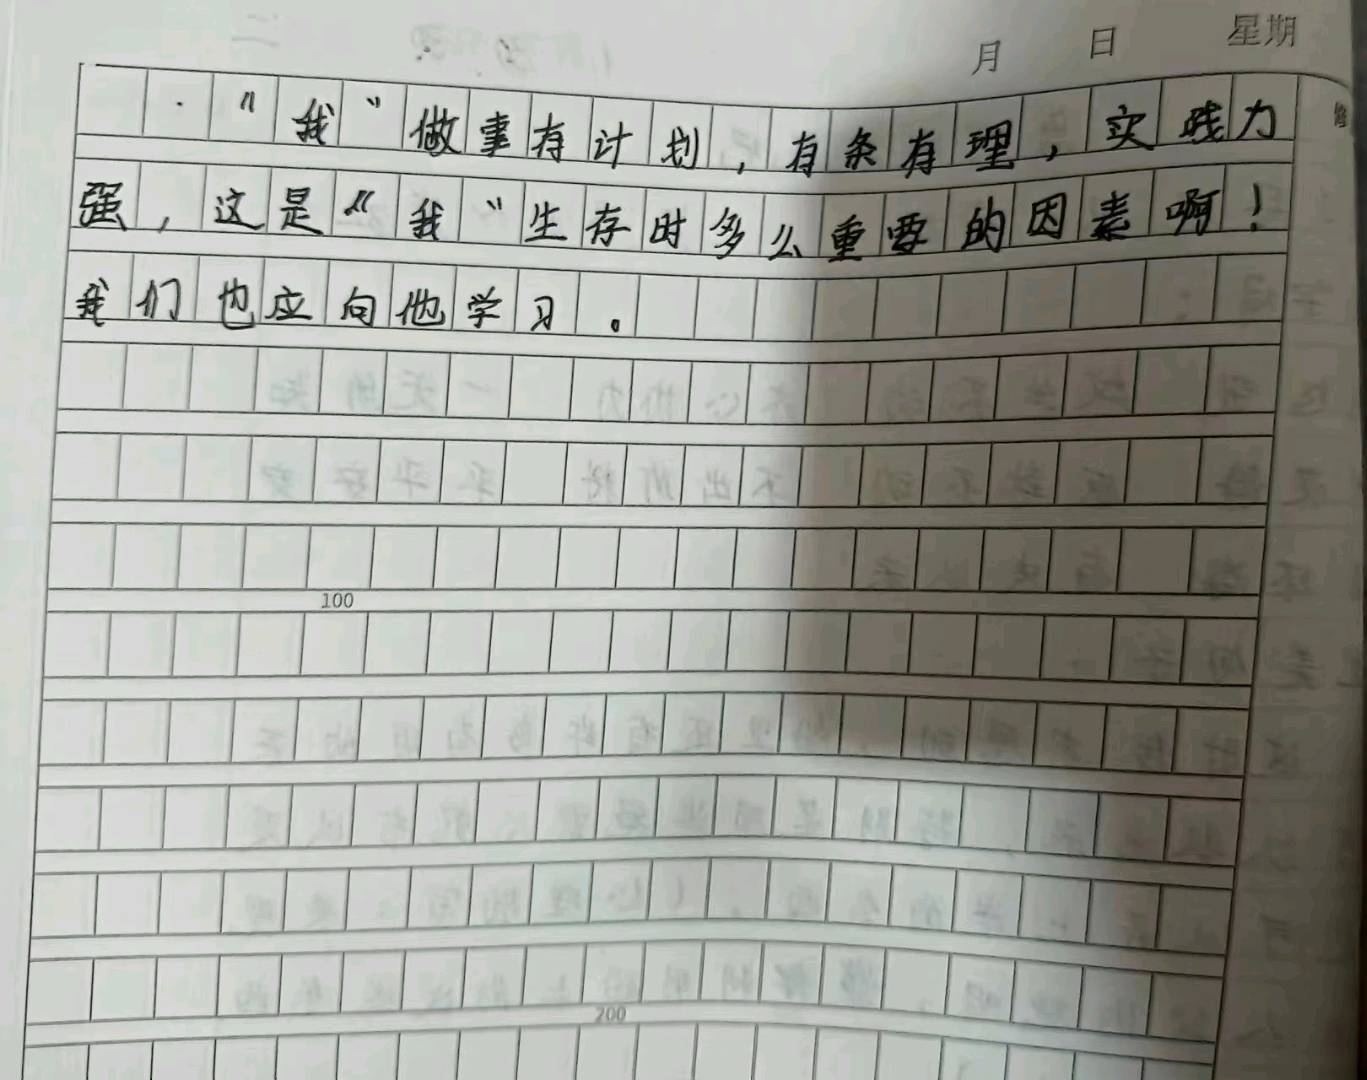 月 日 星期
“我”做事有计划，有条有理，实践力
强，这是“我”生存时多么重要的因素啊！
我们也应向他学习。
100
200